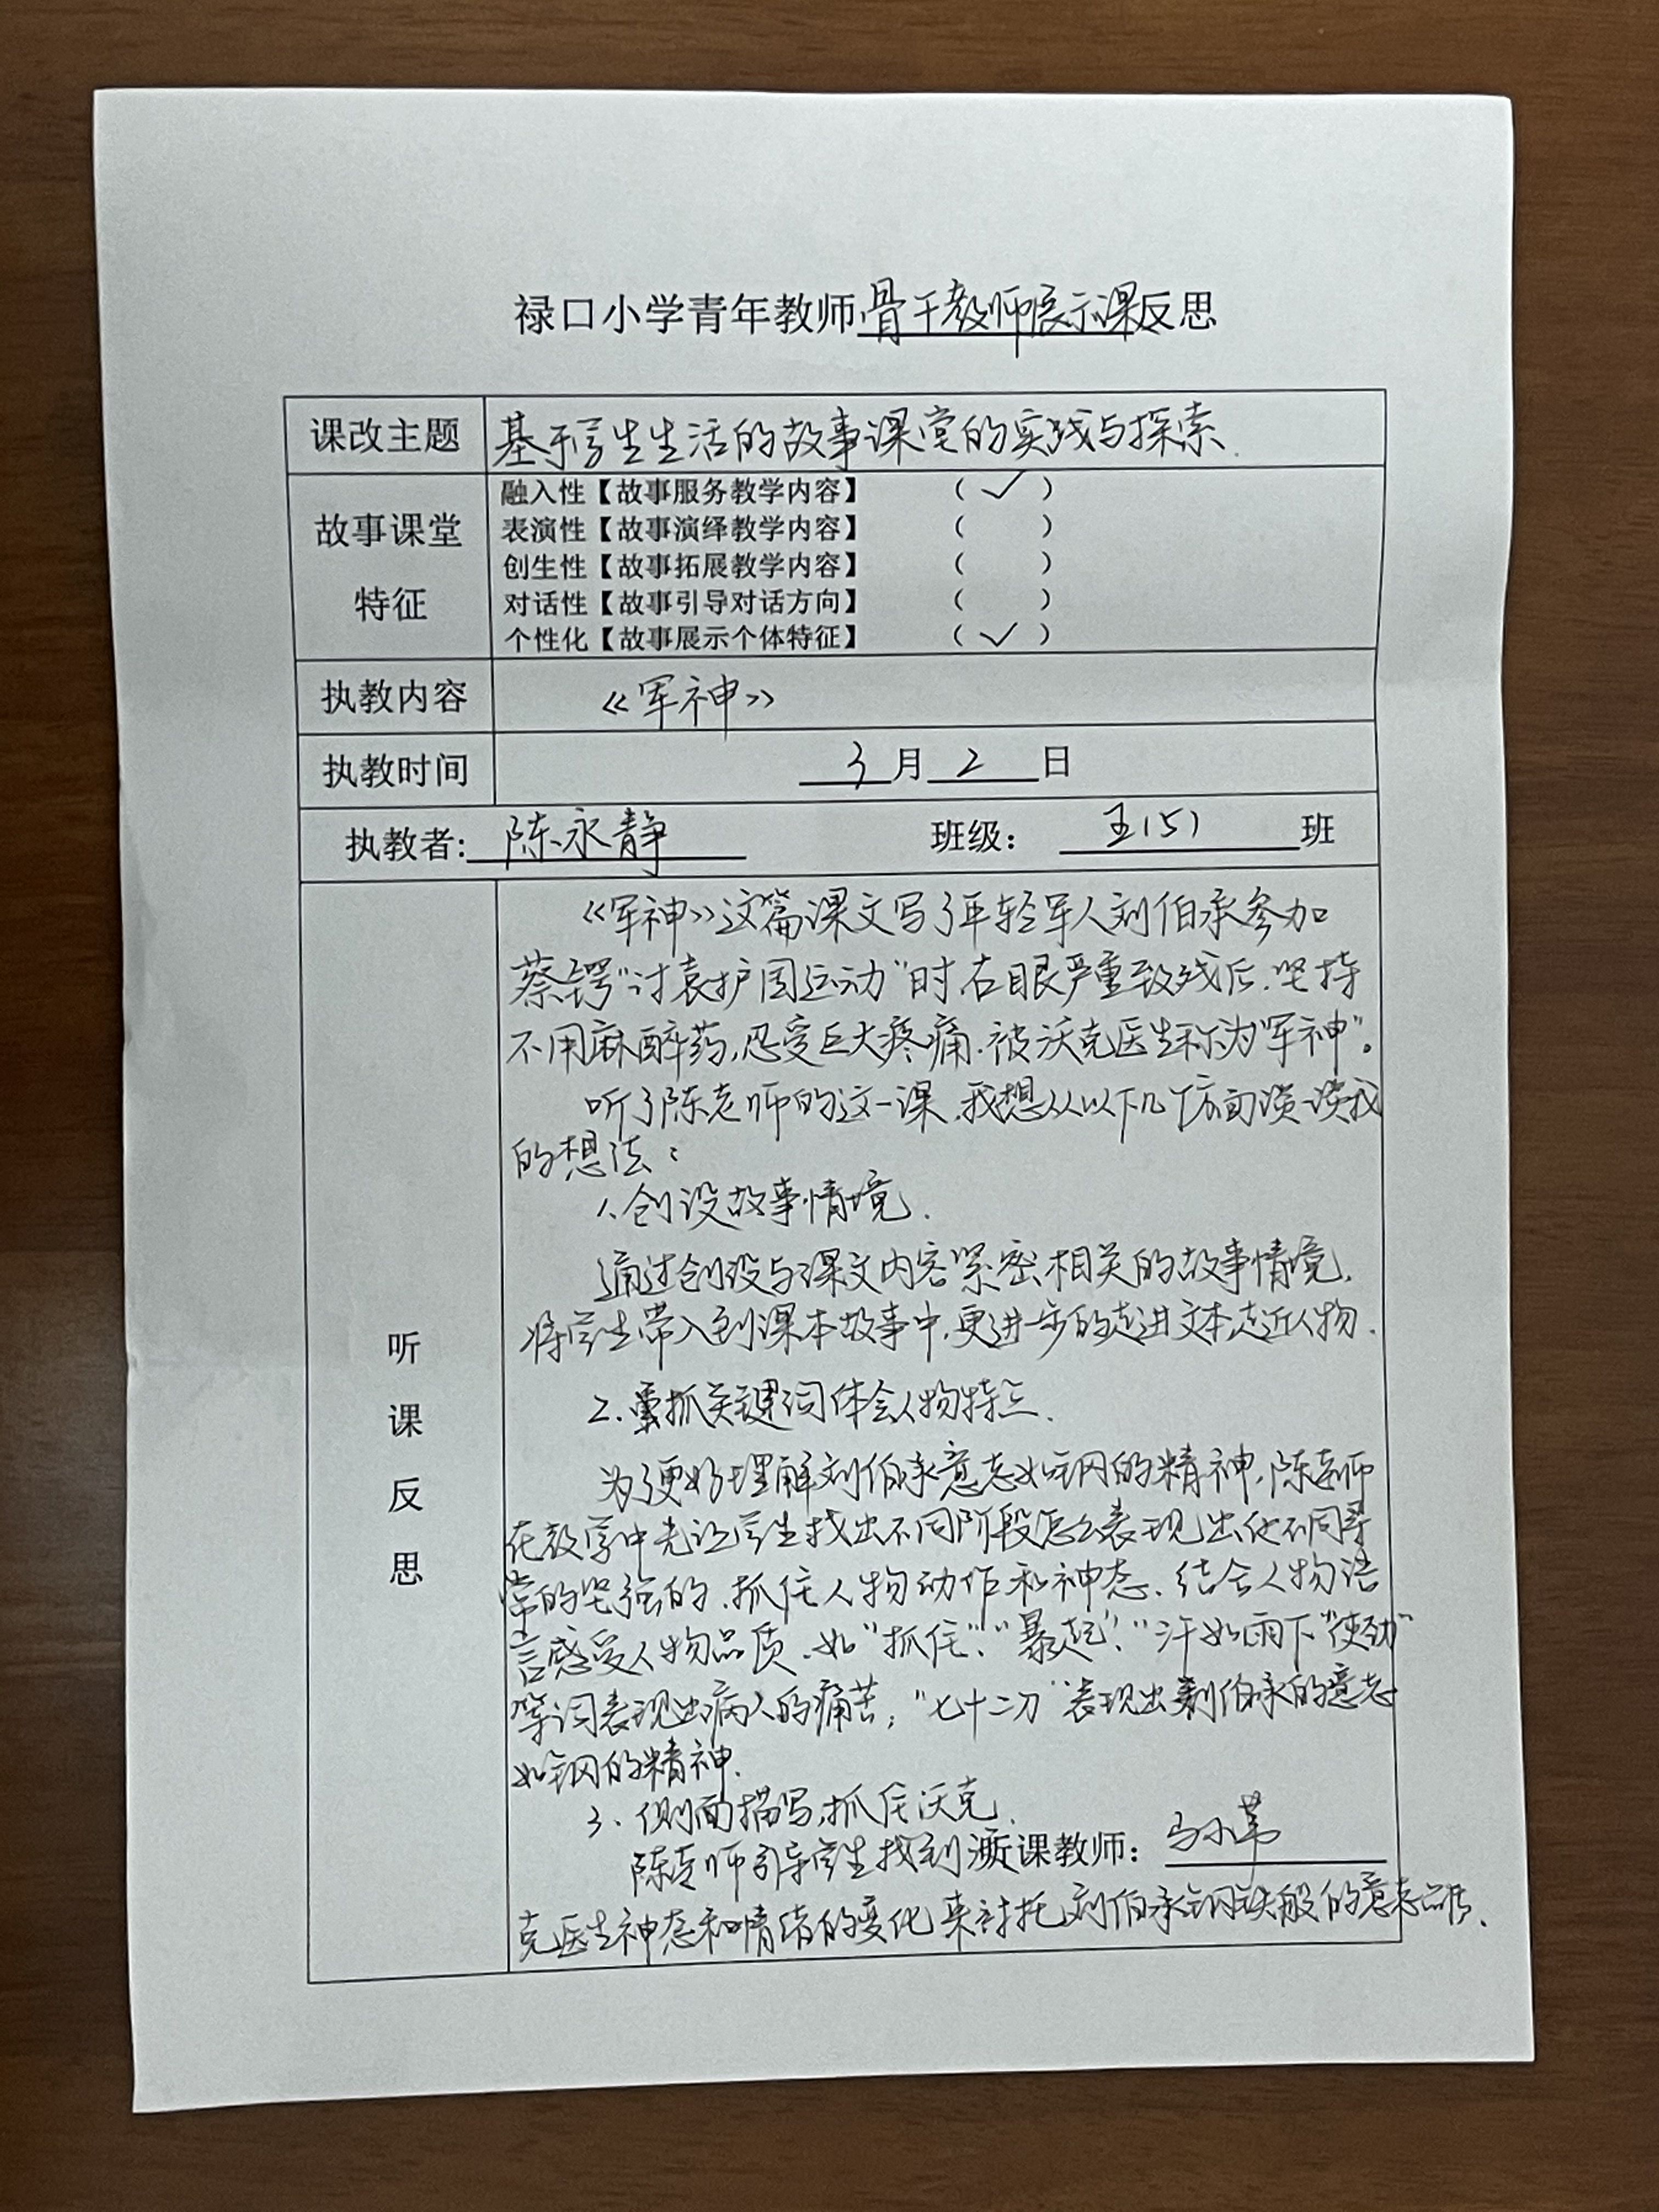 禄口小学青年教师骨干教师展示课反思
课改主题 基于学生生活的故事课堂的实践与探索.
故事课堂特征
融入性【故事服务教学内容】 ( ✓ )
表演性【故事演绎教学内容】 ( )
创生性【故事拓展教学内容】 ( )
对话性【故事引导对话方向】 ( )
个性化【故事展示个体特征】 ( ✓ )
执教内容 《军神》
执教时间 3月2日
执教者: 陈永静 班级: 五(5)班
听课反思
《军神》这篇课文写了年轻军人刘伯承参加
蔡锷“讨袁护国运动”时右眼严重致残后.坚持
不用麻醉药,忍受巨大疼痛.被沃克医生称为“军神”。
听了陈老师的这一课,我想从以下几个方面谈谈我
的想法:
1.创设故事情境.
通过创设与课文内容紧密相关的故事情境,
将学生带入到课本故事中,更进一步的走进文本,走近人物.
2.抓关键词体会人物特点.
为了更好理解刘伯承意志如钢的精神,陈老师
在教学中先让学生找出不同阶段怎么表现出他不同寻
常的坚强的.抓住人物动作和神态.结合人物语
言感受人物品质.如“抓住”、“暴起”、“汗如雨下”“使劲”
等词表现出病人的痛苦;“七十二刀”表现出刘伯承的意志
如钢的精神.
3.侧面描写,抓住沃克.
陈老师引导学生找到沃
听课教师:
克医生神态和情绪的变化来衬托刘伯承钢铁般的意志品质.